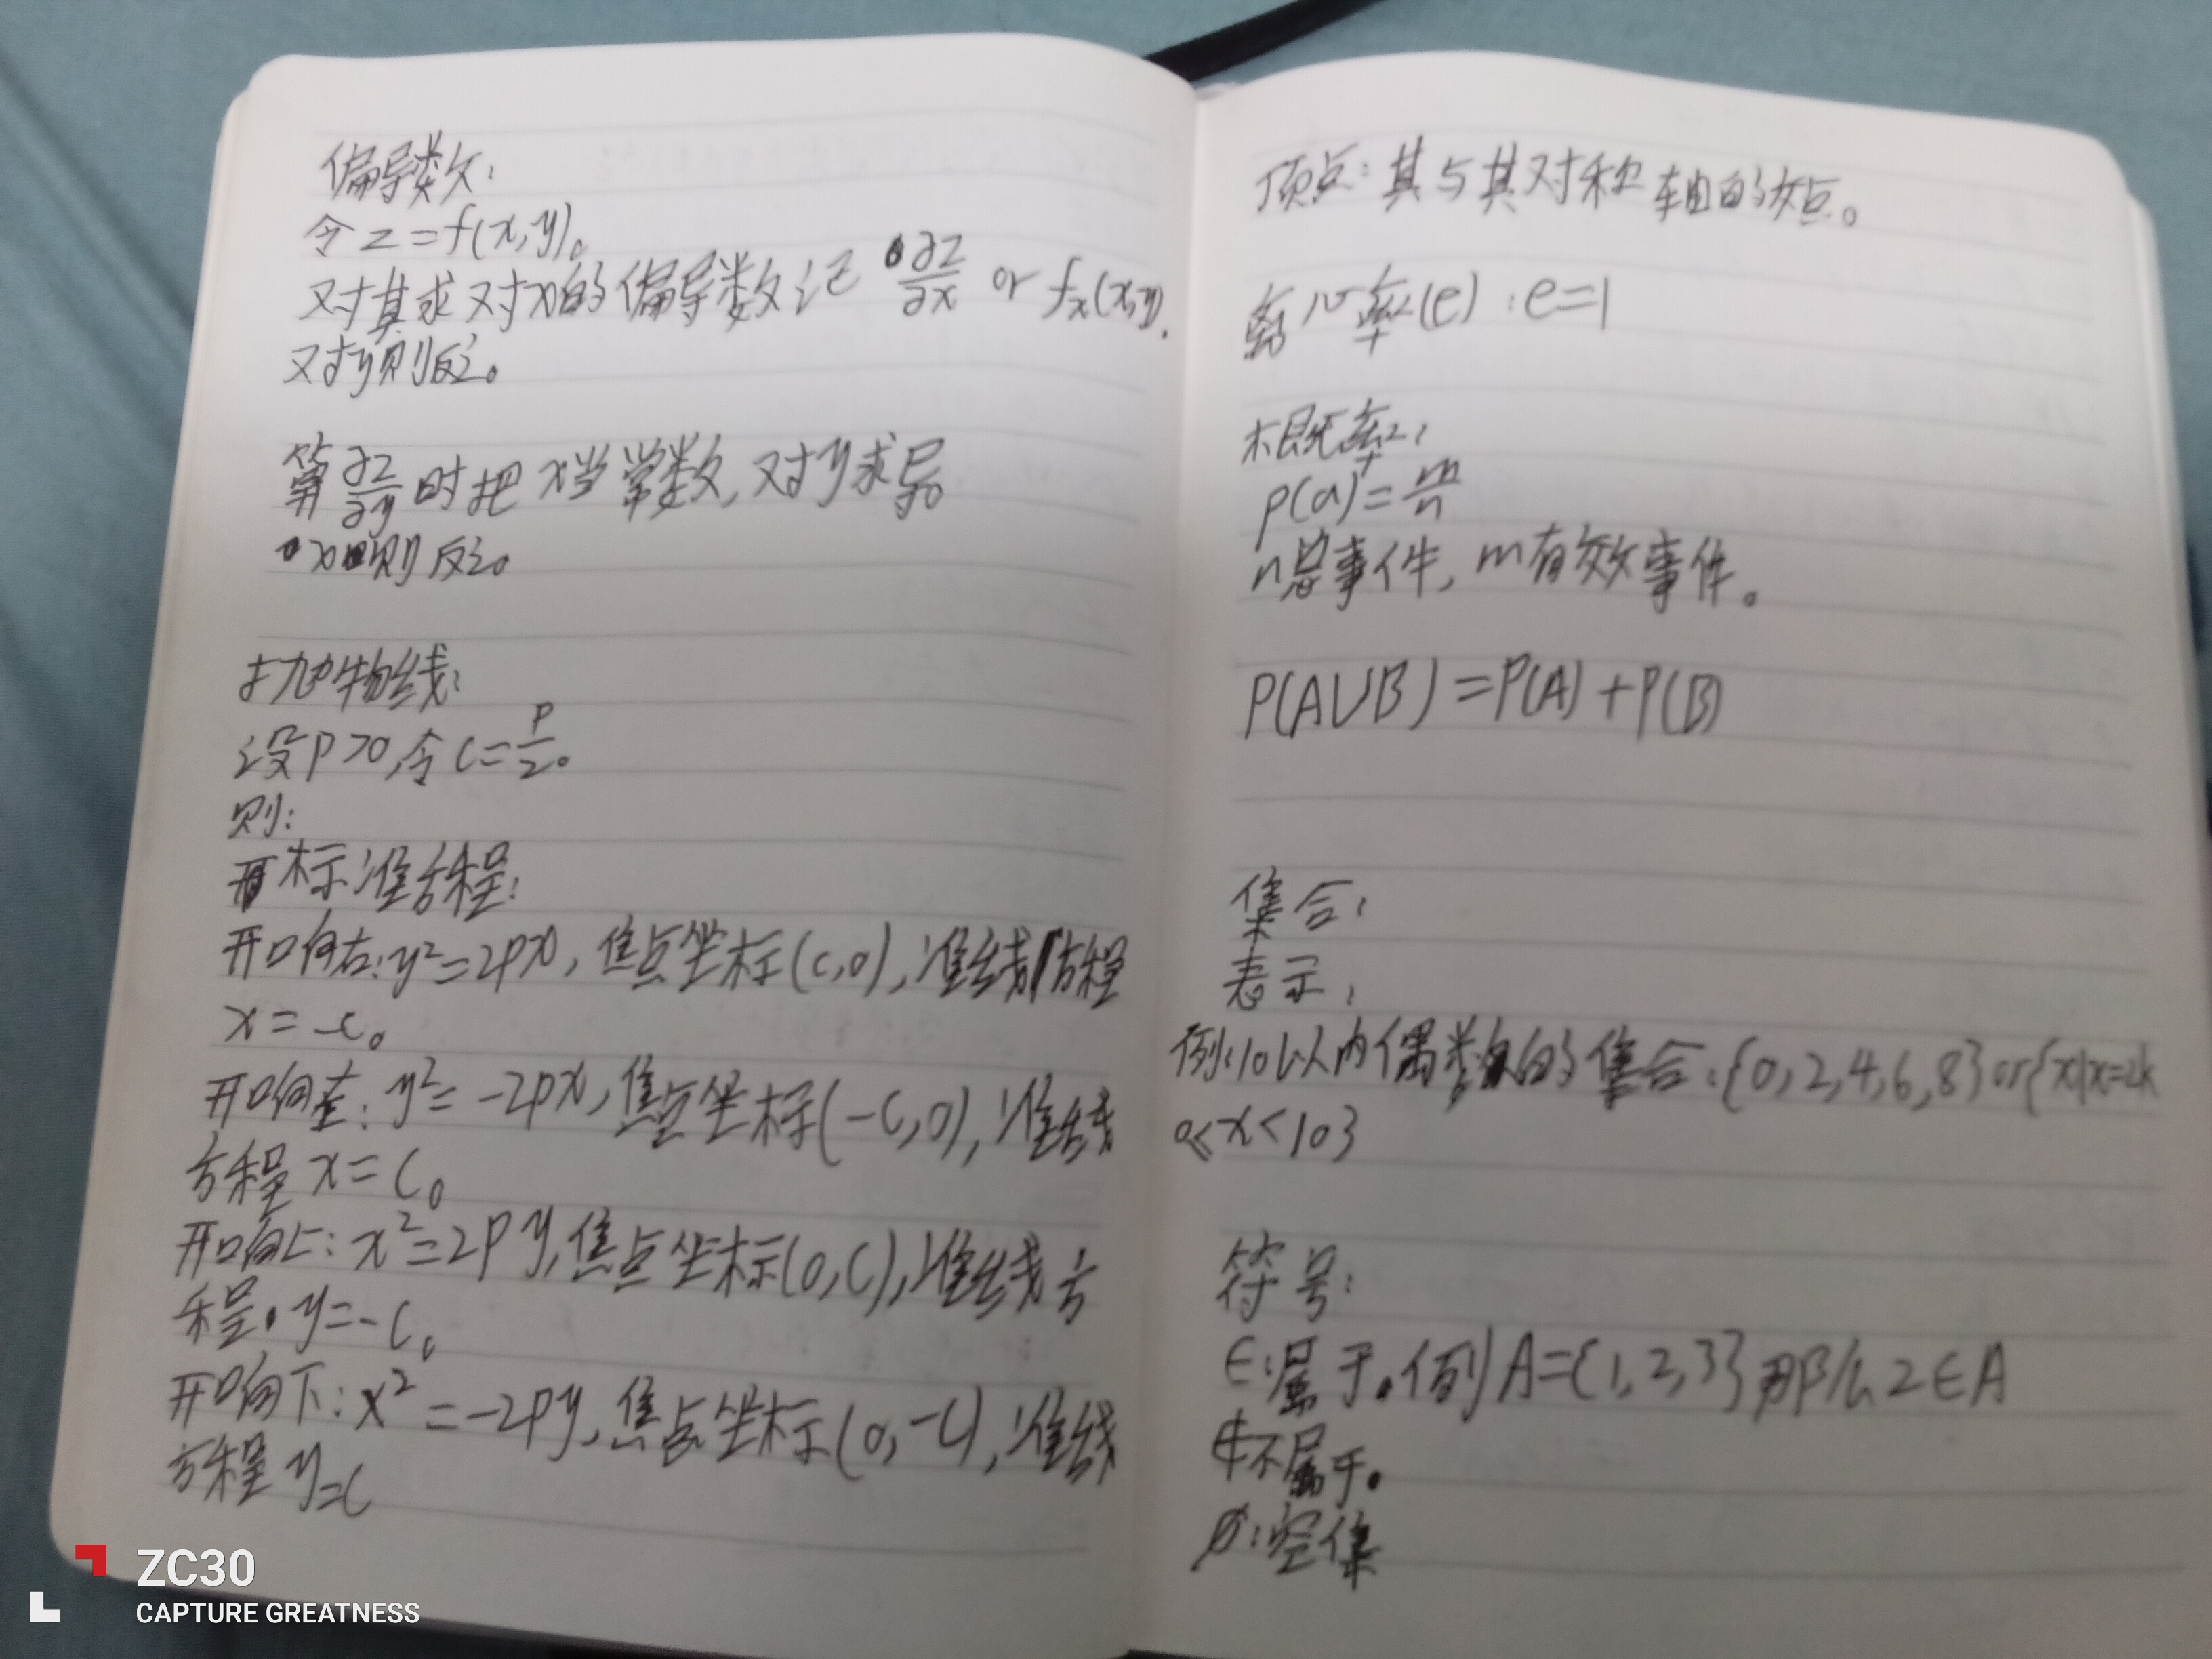 偏导数:
令z=f(x,y)。
对其求对x的偏导数记 ∂z/∂x or fx(x,y).
对y则反之。
算∂z/∂y时把x当常数,对y求导。
x则反之。
抛物线:
设P>0,令C=P/2。
则:
标准方程:
开口向右:y²=2px,焦点坐标(c,0),准线方程
x=-c。
开口向左:y²=-2px,焦点坐标(-c,0),准线
方程x=C。
开口向上:x²=2py,焦点坐标(0,C),准线方
程y=-C。
开口向下:x²=-2py,焦点坐标(0,-C),准线
方程y=C
顶点:其与其对称轴的交点。
离心率(e):e=1
概率:
P(a)=m/n
n总事件,m有效事件。
P(A∪B)=P(A)+P(B)
集合:
表示:
例:10以内偶数的集合:{0,2,4,6,8}or{x|x=2k
0≤x<10}
符号:
∈:属于。例A={1,2,3}那么2∈A
∉不属于。
∅:空集
ZC30
CAPTURE GREATNESS